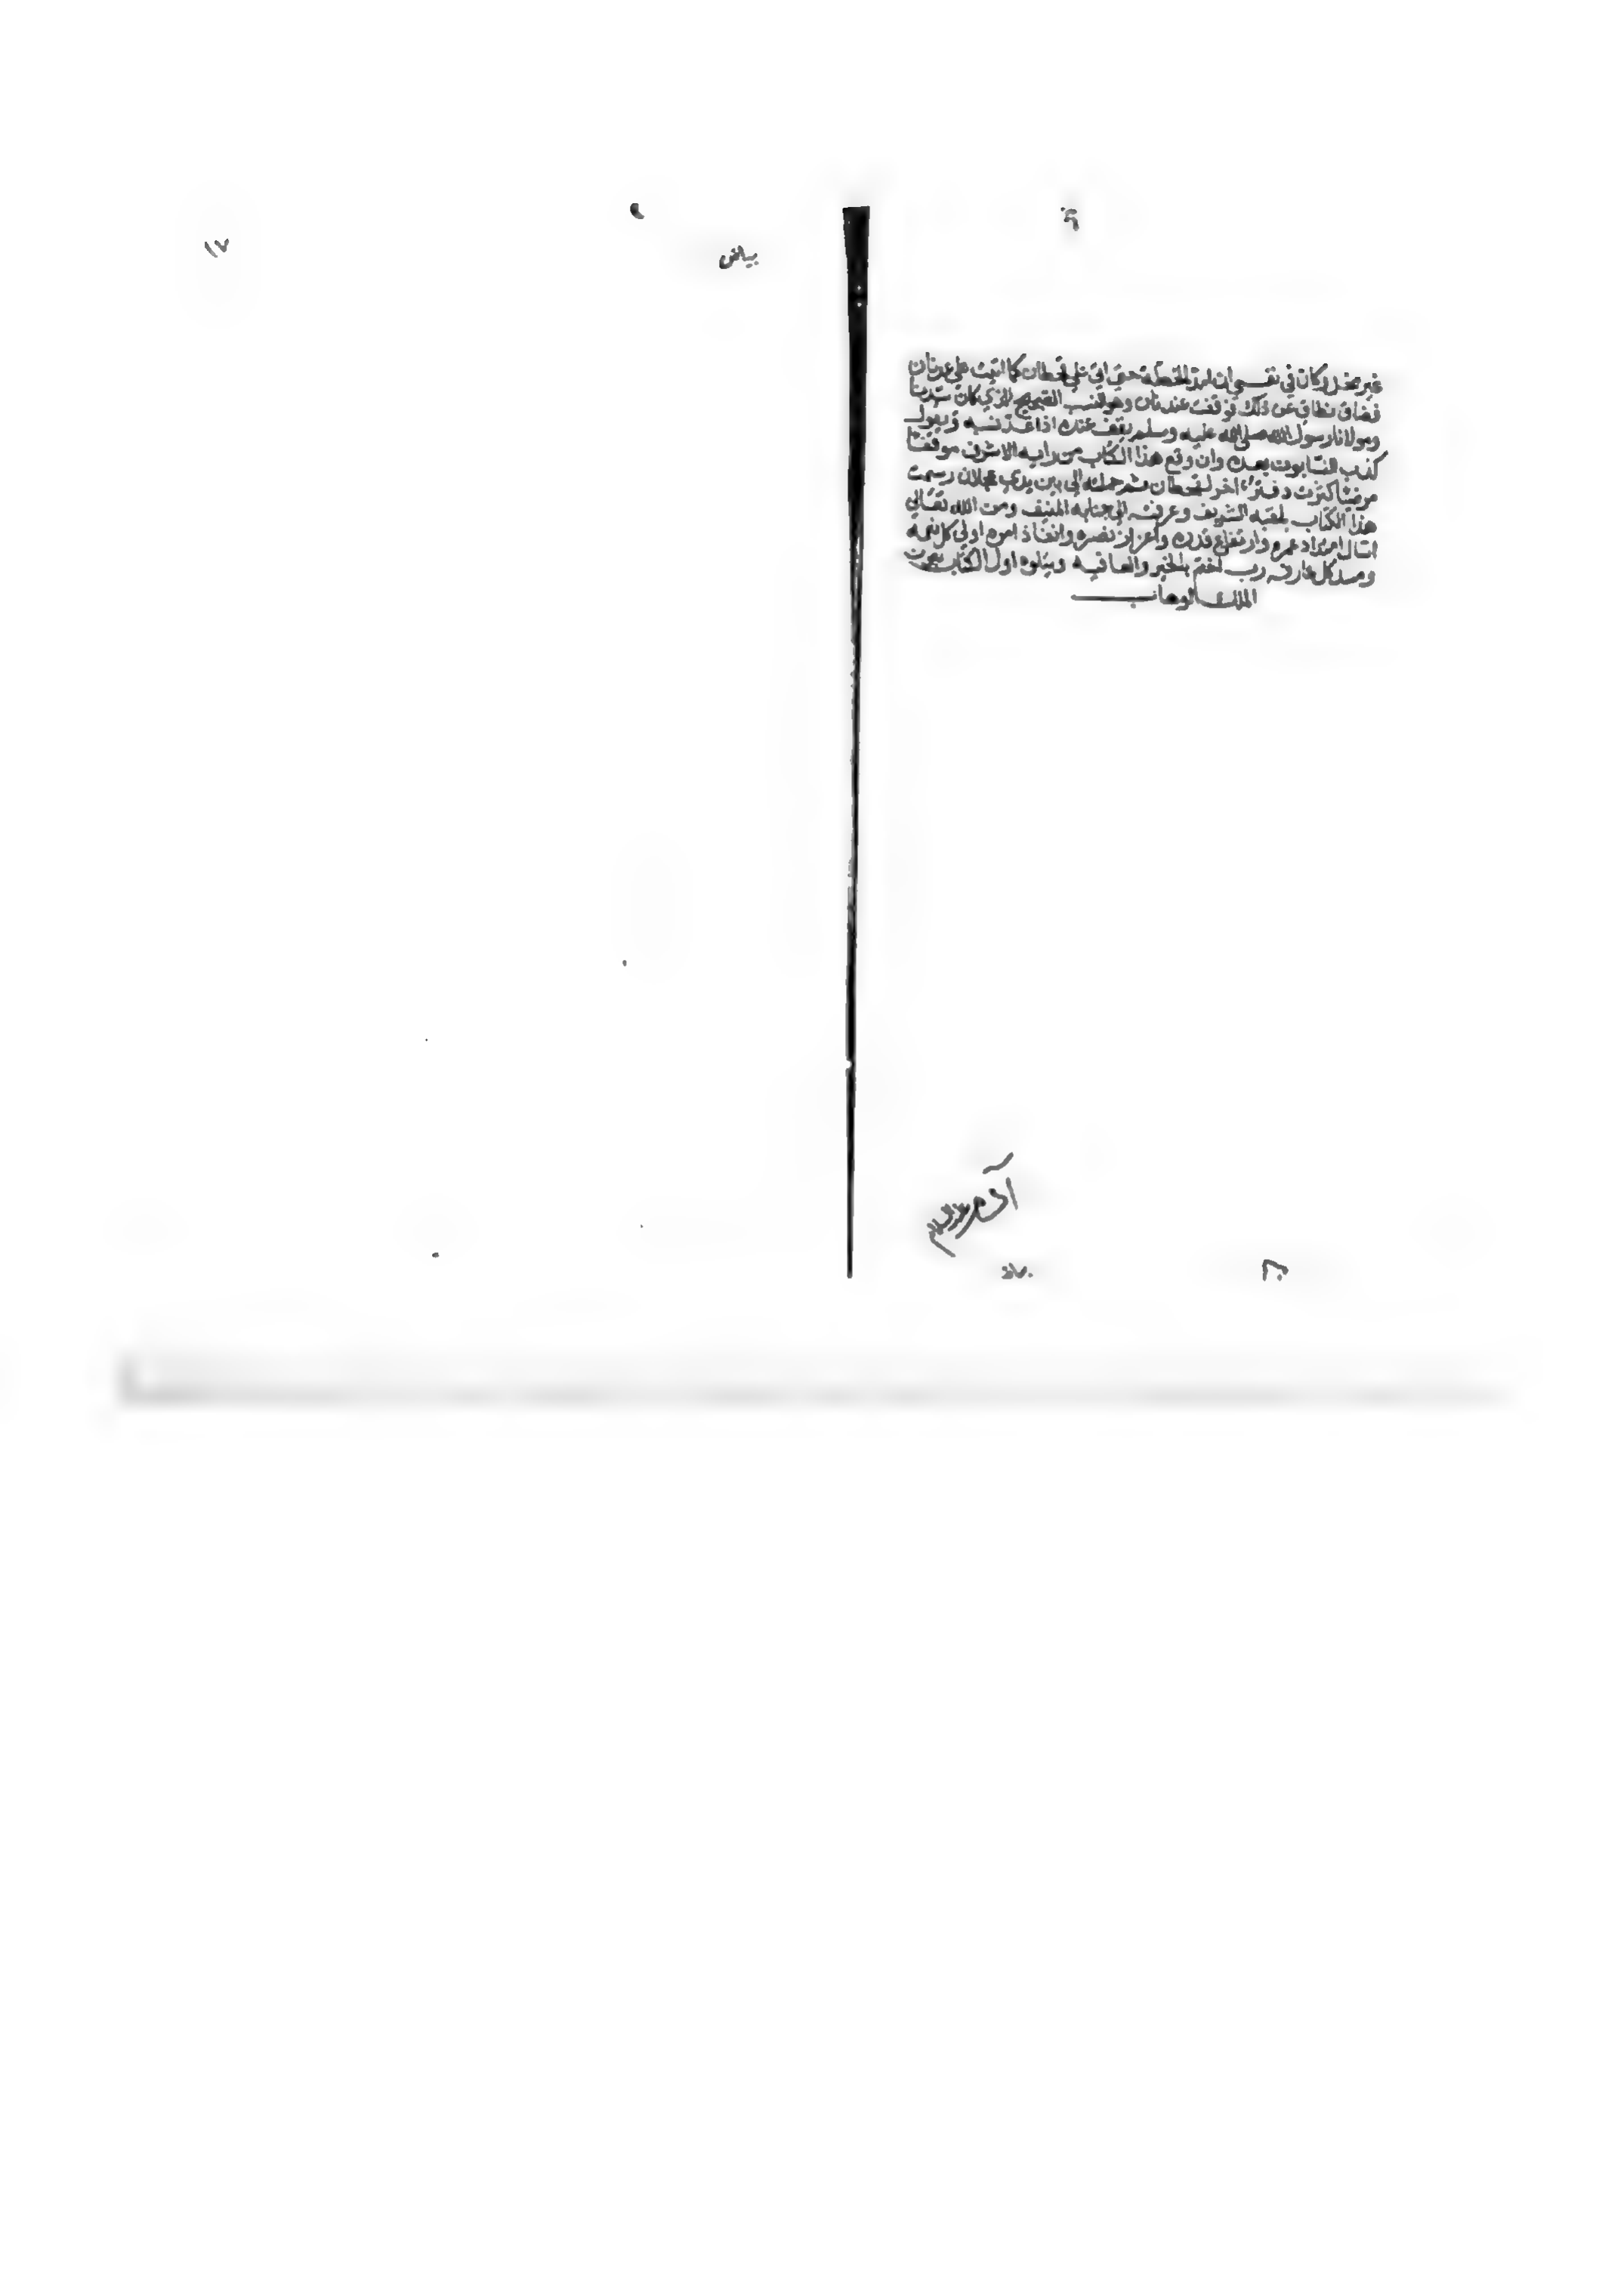 غير مخل وكان في نفسي ان امد الخطبة حتى اتي على قحطان كما اتيت على عدنان
فضاق نطاقي عن ذلك فوقفت عند عدنان وهو النسب الصحيح الذي كان سيدنا
ومولانا رسول الله صلى الله عليه وسلم يقف عنده اذا عد نسبه ويقول
كذب النسابون بعده وان وقع هذا الكتاب من رايه الاشرف موقفا
مرضيا كتبت دفترا اخر لقحطان ثم حملته الى بين يدي رسمت
هذا الكتاب بلقبه الشريف وعرفته الى جنابه المنيف ومن الله تعالى
اسال امتداد عمره وارتفاع قدره واعزاز نصره وانفاذ امره اولى كل نعمه
ومسد كل عارفه رب اختم بالخير والعافيه ويتلوه اول الكتاب بعون
الملك الوهاب
آدم عليه السلام
بياض